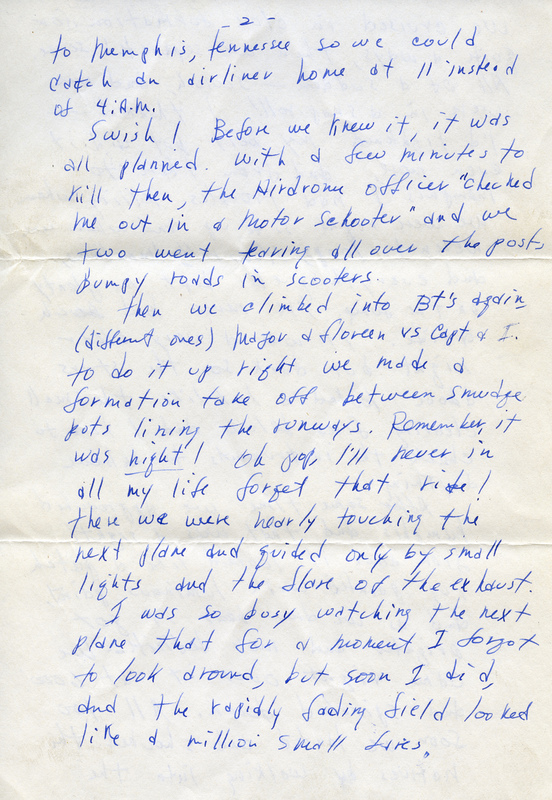 - 2 -
to Memphis, Tennessee so we could
catch an airliner home at 11 instead
of 4:A.M.
Swish! Before we knew it, it was
all planned. With a few minutes to
kill then, the Airdrome officer "checked
me out in a motor schooter" and we
two went tearing all over the posts
bumpy roads in scooters.
Then we climbed into BT's again
(different ones) Major & Floreen vs Capt & I.
To do it up right we made a
formation take off between smudge
pots lining the runways. Remember, it
was night! Oh I'll never in
all my life forget that ride!
There we were nearly touching the
next plane and guided only by small
lights and the flare of the exhaust.
I was so busy watching the next
plane that for a moment I forgot
to look around, but soon I did,
and the rapidly fading field looked
like a million small fires.